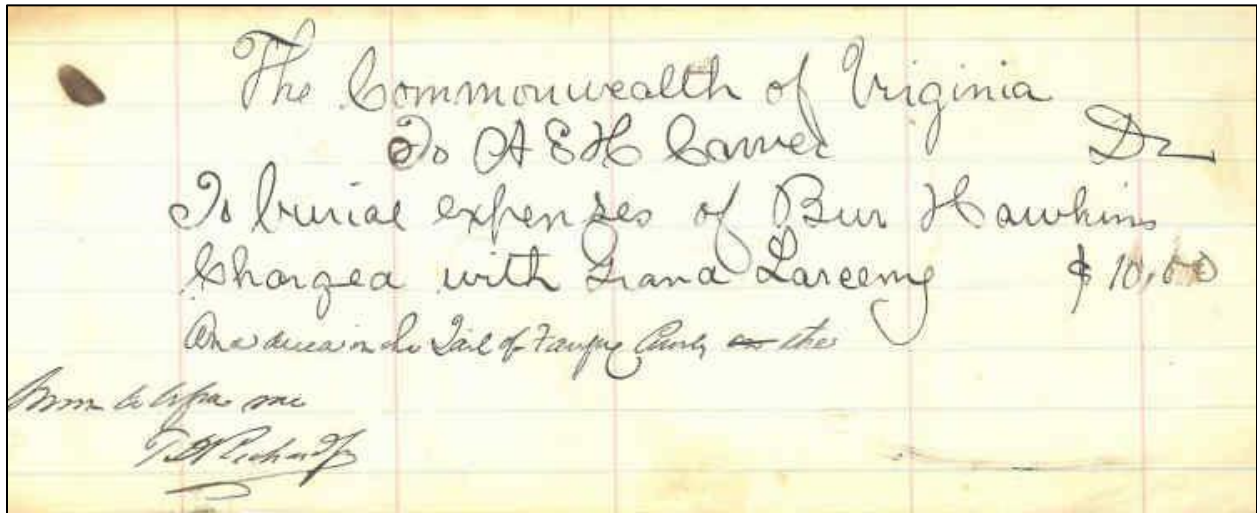 The Commonwealth of Virginia
To A E H Carver Dr
To burial expenses of Bur Hawkins
Charged with Grand Larceny $10,00
and died in the Jail of Fauquier County the
Sworn to before me